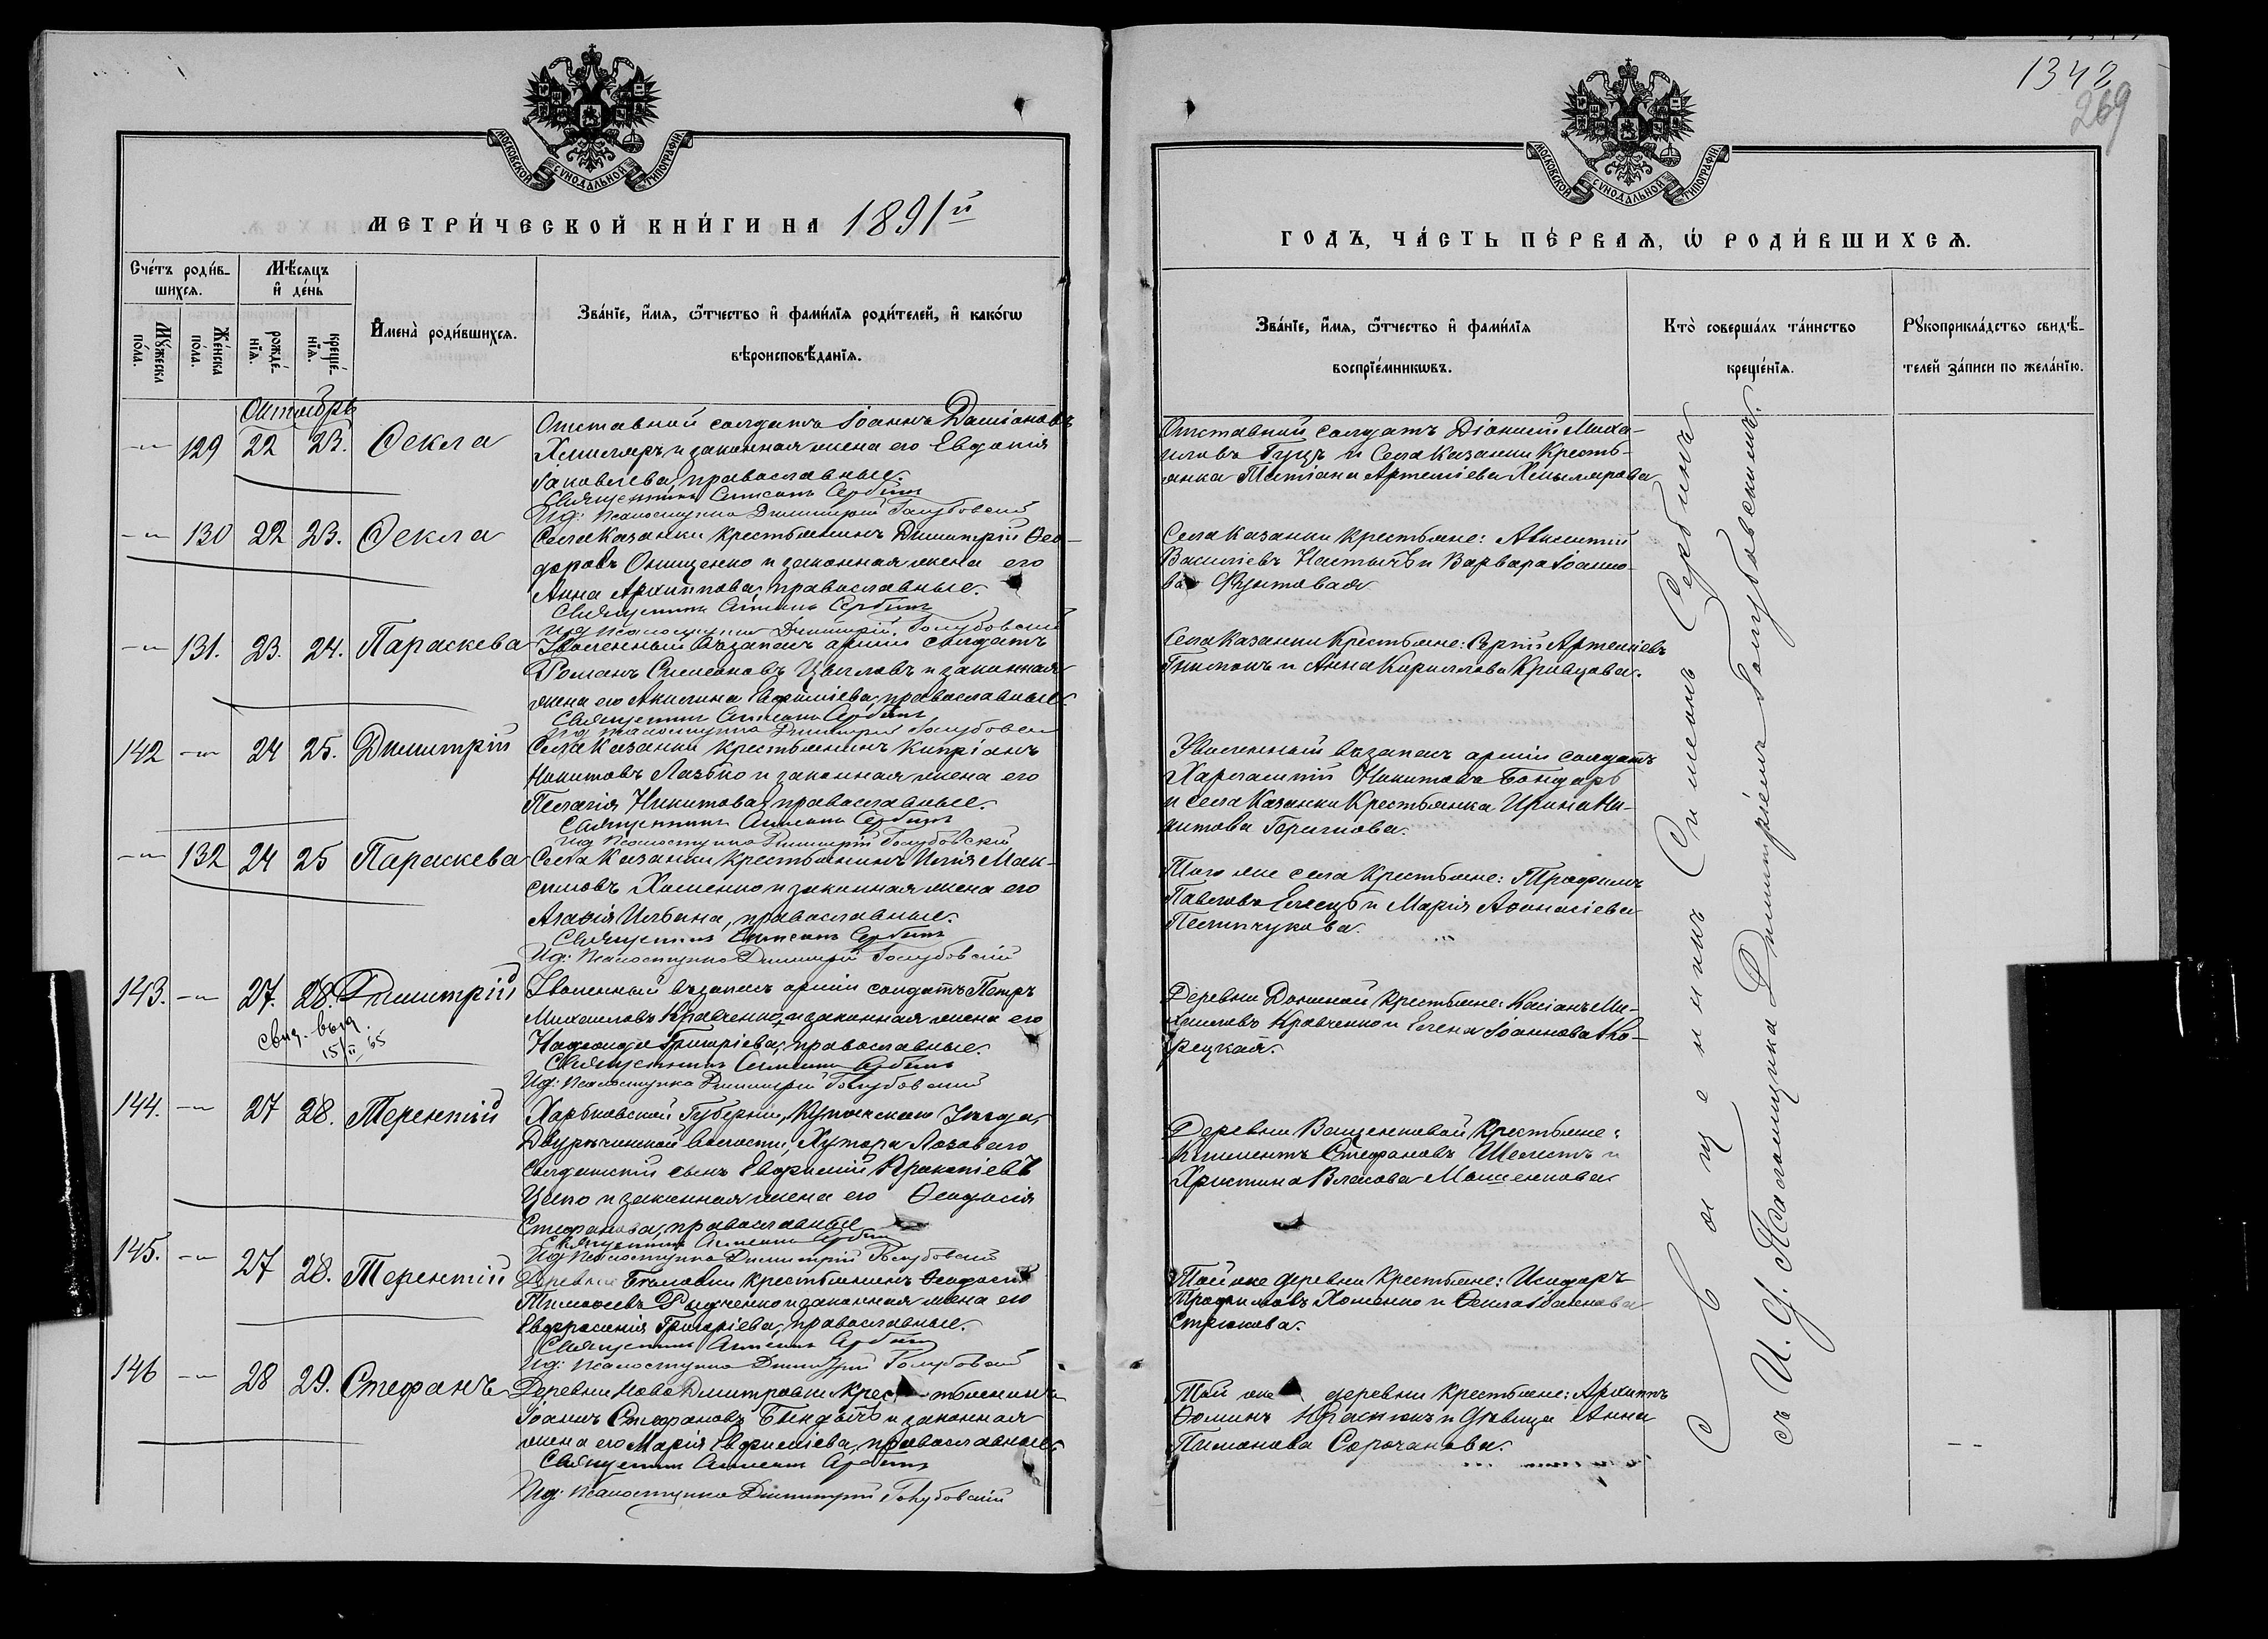 1342
269
МОСКОВСКОЙ СѴНОДАЛЬНОЙ ТИПОГРАФІИ
МЕТРИ́ЧЕСКОЙ КНИ́ГИ НА 1891й
Сче́тъ роди́в-
шихсѧ.
Мꙋ́жеска
по́ла.
Же́нска
по́ла.
Мѣ́сѧцъ
и҆ де́нь
рожде́-
нїѧ.
креще́-
нїѧ.
И҆мена̀ роди́вшихсѧ.
Зва́нїе, и҆́мѧ, ѻ҆́тчество и҆ фами́лїѧ роди́телей, и҆ како́гѡ
вѣроисповѣ́данїѧ.
Октябрь
-"- 129 22 23. Ѳекла
Отставной солдатъ Іоаннъ Даміановъ
Хмиляръ и законная жена его Евдокія
Іаковлева, православные.
Священникъ Симеонъ Сербинъ
Ид: Псаломщика Димитрій Голубовскій
-"- 130 22 23. Ѳекла
Села Казанки крестьянинъ Димитрій Ѳео-
доровъ Онищенко и законная жена его
Анна Архиппова, православные.
Священникъ Симеонъ Сербинъ
Ид Псаломщика Димитрій Голубовскій
-"- 131. 23. 24. Параскева
Уволенный въ запасъ арміи солдатъ
Романъ Симеоновъ Цвиловъ и законная
жена его Акилина Евфиміева, православные.
Священникъ Симеонъ Сербинъ
Ид Псаломщика Димитрій Голубовскій
142 -"- 24 25. Димитрій
Села Казанки крестьянинъ Кипріанъ
Никитовъ Лазько и законная жена его
Пелагія Никитова, православные.
Священникъ Симеонъ Сербинъ
Ид Псаломщика Димитрій Голубовскій
-"- 132 24 25 Параскева
Села Казанки крестьянинъ Илія Мак-
симовъ Хоменко и законная жена его
Агафія Ильина, православные.
Священникъ Симеонъ Сербинъ
Ид: Псаломщика Димитрій Голубовскій
143. -"- 27. 28. Димитрій
Свид. выд.
15/II 65
Уволенный въ запасъ арміи солдатъ Петръ
Михаиловъ Кравченко и законная жена его
Надежда Григоріева, православные.
Священникъ Симеонъ Сербинъ
Ид: Псаломщика Димитрій Голубовскій
144. -"- 27 28. Терентій
Харьковской Губерніи, Купянскаго Уезда,
Двуречинской волости, Хутора Лозоваго
солдатскій сынъ Евфимій Прокопіевъ
Цепо и законная жена его Ѳеодосія
Стефанова, православные
Священникъ Симеонъ Сербинъ
Ид Псаломщика Димитрій Голубовскій
145. -"- 27 28. Терентій
Деревни крестьянинъ Ѳеодосій
Тимоѳеевъ Радченко и законная жена его
Евфросинія Григоріева, православные.
Священникъ Симеонъ Сербинъ
Ид: Псаломщика Димитрій Голубовскій
146 -"- 28 29. Стефанъ
Деревни Ново Дмитровки крестьянинъ
Іоаннъ Стефановъ и законная
жена его Марія Евфиміева, православные.
Священникъ Симеонъ Сербинъ
Ид: Псаломщика Димитрій Голубовскій
МОСКОВСКОЙ СѴНОДАЛЬНОЙ ТИПОГРАФІИ
ГОДЪ, ЧА́СТЬ ПЕ́РВАѦ, Ѡ҆ РОДИ́ВШИХСѦ.
Зва́нїе, и҆́мѧ, ѻ҆́тчество и҆ фами́лїѧ
воспрїе́мникѡвъ.
Кто̀ соверша́лъ та́инство
креще́нїѧ.
Рꙋкоприкла́дство свидѣ́-
телей за́писи по жела́нїю.
Отставный солдатъ Діонисій Миха-
иловъ Гуцъ и Села Казанки кресть-
янка Татіана Артеміева Хмылярова
Села Казанки крестьяне: Авксентій
Василіевъ и Варвара Іоанно-
ва
Села Казанки крестьяне: Сергій Артеміевъ
и Анна Кириллова Кривцова.
Уволенный въ запасъ арміи солдатъ
Харлампій Никитовъ Бондарь
и села Казанки крестьянка Ирина Ни-
китова
Того же села крестьяне: Трофимъ
Павловъ Елецъ и Марія Аѳанасіева
Пестичукова.
Деревни крестьяне: Касіанъ Ми-
хаиловъ Кравченко и Елена Іоаннова Ко-
рецкая.
Деревни Ващенковой крестьяне:
Климентъ Стефановъ Шелестъ и
Христина Власова Мошенкова
Той же деревни крестьяне: Исидоръ
Трофимовъ Хоменко и Ѳекла Іоаннова
Стрюкова.
Той же деревни крестьяне: Архиппъ
Ѳоминъ и девица Анна
Пимонова Сорочанова.
Священникъ Симеонъ Сербинъ
съ И. д. Псаломщика Димитріемъ Голубовскимъ.